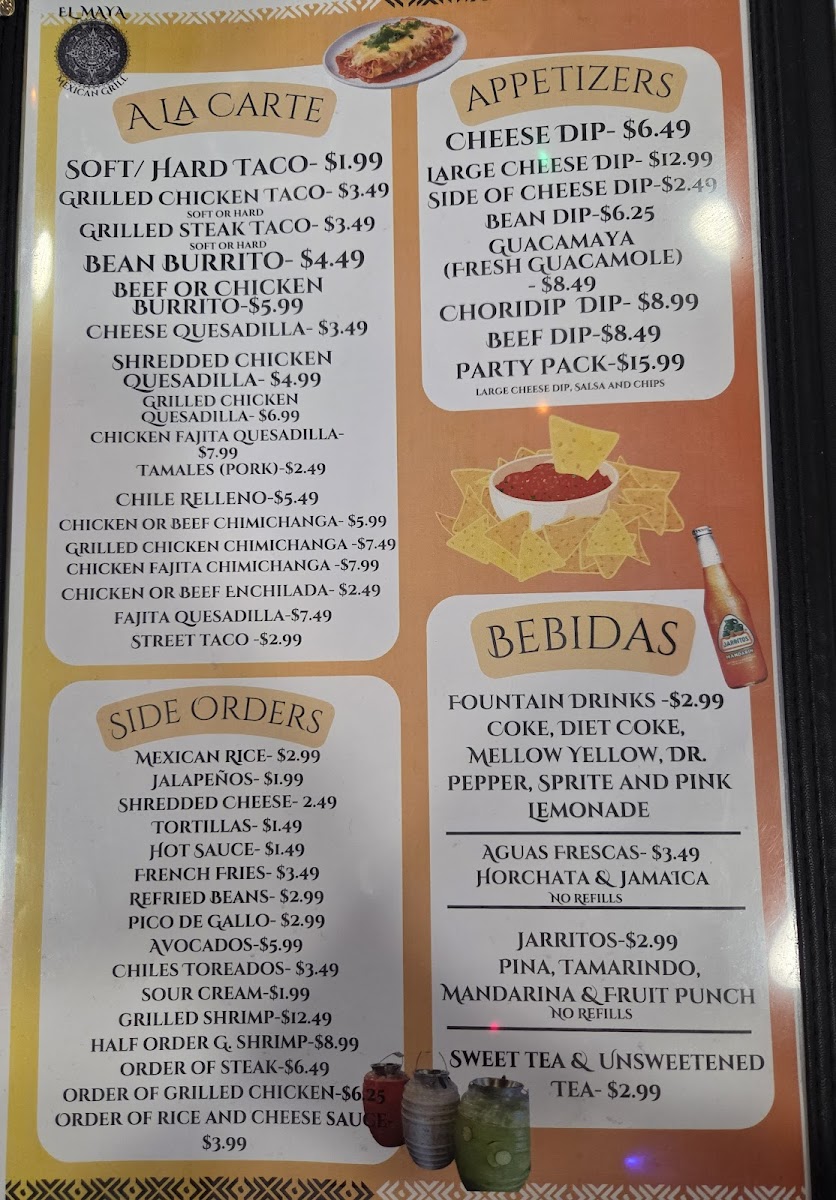 EL MAYA
MEXICAN GRILL
A LA CARTE
SOFT/ HARD TACO- $1.99
GRILLED CHICKEN TACO- $3.49
SOFT OR HARD
GRILLED STEAK TACO- $3.49
SOFT OR HARD
BEAN BURRITO- $4.49
BEEF OR CHICKEN
BURRITO-$5.99
CHEESE QUESADILLA- $3.49
SHREDDED CHICKEN
QUESADILLA- $4.99
GRILLED CHICKEN
QUESADILLA- $6.99
CHICKEN FAJITA QUESADILLA-
$7.99
TAMALES (PORK)-$2.49
CHILE RELLENO-$5.49
CHICKEN OR BEEF CHIMICHANGA- $5.99
GRILLED CHICKEN CHIMICHANGA -$7.49
CHICKEN FAJITA CHIMICHANGA -$7.99
CHICKEN OR BEEF ENCHILADA- $2.49
FAJITA QUESADILLA-$7.49
STREET TACO -$2.99
SIDE ORDERS
MEXICAN RICE- $2.99
JALAPEÑOS- $1.99
SHREDDED CHEESE- 2.49
TORTILLAS- $1.49
HOT SAUCE- $1.49
FRENCH FRIES- $3.49
REFRIED BEANS- $2.99
PICO DE GALLO- $2.99
AVOCADOS-$5.99
CHILES TOREADOS- $3.49
SOUR CREAM-$1.99
GRILLED SHRIMP-$12.49
HALF ORDER G. SHRIMP-$8.99
ORDER OF STEAK-$6.49
ORDER OF GRILLED CHICKEN-$6.25
ORDER OF RICE AND CHEESE SAUCE-
$3.99
APPETIZERS
CHEESE DIP- $6.49
LARGE CHEESE DIP- $12.99
SIDE OF CHEESE DIP-$2.49
BEAN DIP-$6.25
GUACAMAYA
(FRESH GUACAMOLE)
- $8.49
CHORIDIP DIP- $8.99
BEEF DIP-$8.49
PARTY PACK-$15.99
LARGE CHEESE DIP, SALSA AND CHIPS
JARRITOS
MANDARIN
BEBIDAS
FOUNTAIN DRINKS -$2.99
COKE, DIET COKE,
MELLOW YELLOW, DR.
PEPPER, SPRITE AND PINK
LEMONADE
AGUAS FRESCAS- $3.49
HORCHATA & JAMAICA
NO REFILLS
JARRITOS-$2.99
PINA, TAMARINDO,
MANDARINA & FRUIT PUNCH
NO REFILLS
SWEET TEA & UNSWEETENED
TEA- $2.99